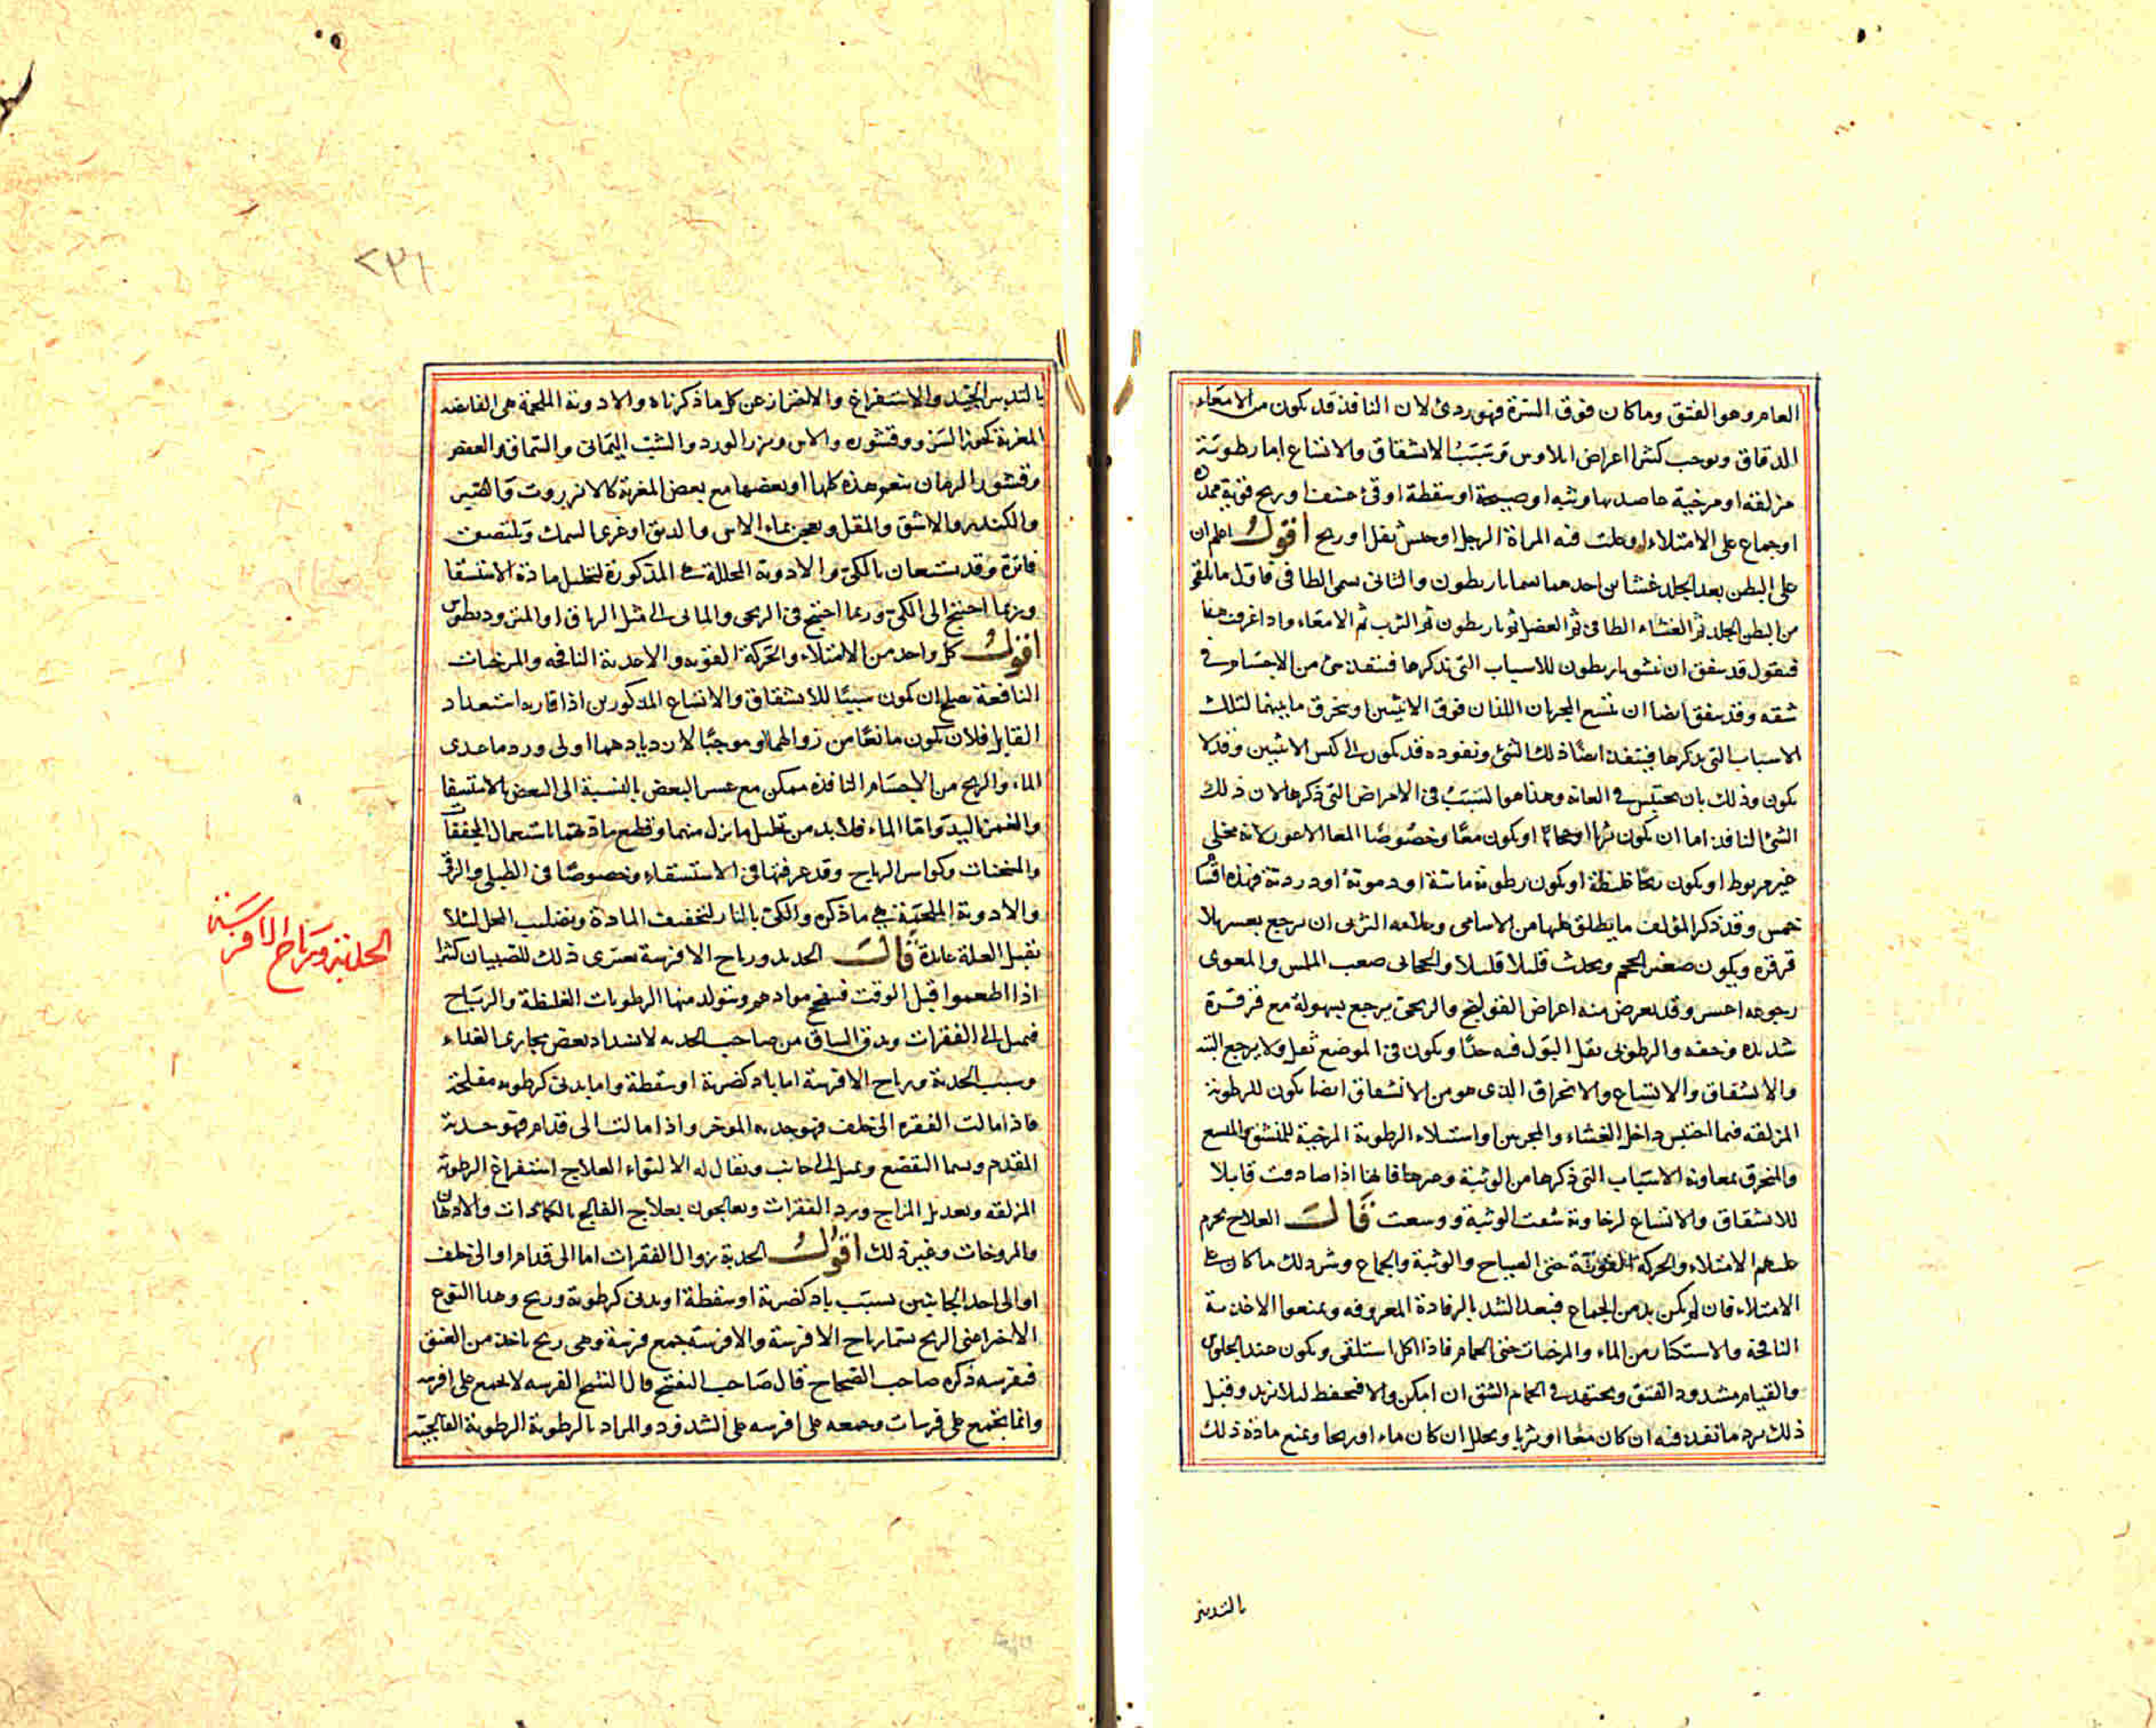 العام وهو الفتق وما كان فوق السرة فهو ردئ لان النافذ قد يكون من الامعاء
الدقاق ويوجب كثيرا اعراض ايلاوس وسبب الانشقاق والاتساع اما رطوبة
مزلقة او مرخية حاصلها وثبة او صيحة او سقطة او قئ عنيف او ريح قوية ممددة
او جماع على الامتلاء او علت فيه المراة الرجل او حبس ثفل او ريح اقول اعلم ان
على البطن بعد الجلد غشاين احدهما يسما باريطون والثانى يسمى الطافى فاول ما يلقى
من البطن الجلد ثم الغشاء الطافى ثم العضل ثم باريطون ثم الثرب ثم الامعاء واذا عرفت هذا
فنقول قد يتفق ان ينشق باريطون للاسباب التى نذكرها فينفذ شئ من الاجسام فى
شقه وقد يتفق ايضا ان يتسع المجريان اللذان فوق الانثيين او ينخرق ما بينهما لتلك
الاسباب التى يذكرها فينفذ ايضا ذلك الشئ ونفوذه قد يكون الى كيس الانثيين وقد لا
يكون وذلك بان يحتبس فى العانة وهذا هو السبب فى الاعراض التى ذكرها لان ذلك
الشئ النافذ اما ان يكون ثربا او حجابا او يكون معا وخصوصا المعا الاعور لانه مخلى
غير مربوط او يكون ريحا غليظة او يكون رطوبة مائية او دموية او دردية فهذه اقسام
خمس وقد ذكر المؤلف ما يطلق عليها من الاسامى وعلامة الثربى ان يرجع بعسر بلا
قرقرة ويكون صغير الحجم ويحدث قليلا قليلا والحجابى صعب الملس والمعوى
رجوعه احسر وقد يعرض منه اعراض القولنج والريحى يرجع بسهولة مع قرقرة
شديدة وخفة والرطوبى يقل البول فيه جدا ويكون فى الموضع ثقل ولا يرجع البتة
والانشقاق والاتساع والانخراق الذى هو من الانشقاق ايضا يكون للرطوبة
المزلقة فيما احتبس داخل الغشاء والمجريين او استيلاء الرطوبة المرخية للمنشق والمتسع
والمنخرق بمعاونة الاسباب التى ذكرها من الوثبة وغيرها فانها اذا صادفت قابلا
للانشقاق والاتساع لرخاوته شقت الوثبة ووسعت قال العلاج يحرم
عليهم الامتلاء والحركة القوية حتى الصياح والوثبة والجماع وشر ذلك ما كان على
الامتلاء فان لم يكن بد من الجماع فبعد الشد بالرفادة المعروفة ويمنعوا الاغذية
النافخة والاستكثار من الماء والمرخيات حتى الحمام فاذا اكل استلقى ويكون عند الجلوس
والقيام مشدود الفتق ويجتهد فى الحام الشق ان امكن والا فيحفظ ليلا يزيد وقبل
ذلك يرد ما نفذ فيه ان كان معا او ثربا ويحلل ان كان ماء او ريحا ويمنع مادة ذلك
بالتدبير
٢٣١
بالتدبير الجيد والاستفراغ والاحتراز عن كل ما ذكرناه والادوية الملحمة هى القابضة
المغرية كجوز السرو وقشوره والاس وبزر الورد والشب اليمانى والسماق والعفص
وقشور الرمان يتعم هذه كلها او بعضها مع بعض المغرية كالانزروت والصبر
والكندر والاشق والمقل ويعجن بماء الاس والدبق او غرى السمك وتلتصق
فاترة وقد يستعان بالكى والادوية المحللة هى المذكورة لتحليل مادة الاستسقا
وربما احتيج الى الكى وربما احتيج فى الريحى والمائى الى مثل الترياق او المثروديطوس
اقول كل واحد من الامتلاء والحركة القوية والاغذية النافخة والمرخيات
النافعة يصلح ان يكون سببا للانشقاق والاتساع المذكورين اذا قارنه استعداد
القابل فلان يكون مانعا من زوالهما او موجبا لازديادهما اولى ورد ما عدى
الماء والريح من الاجسام النافذة ممكن مع عسر البعض بالنسبة الى البعض بالاستلقا
والغمز باليد واما الماء فلا بد من تحليل ما نزل منهما وقطع مادتهما باستعمال المجففات
والمسخنات وكواسر الرياح وقد عرفتها فى الاستسقاء وخصوصا فى الطبلى والزقى
والادوية الملحمة هى ما ذكره والكى بالنار لتخفيف المادة وتصليب المحل لئلا
تقبل العلة عائدة قال الحدبة ورياح الافرسة يعترى ذلك للصبيان كثيرا
اذا اطعموا قبل الوقت فينفخ موادهم وتتولد منها الرطوبات الغليظة والرياح
فتميل الى الفقرات ويدق الساق من صاحب الحدبة لانسداد بعض مجارى الغذاء
وسبب الحدبة ورياح الافرسة اما باد كضربة او سقطة واما بدنى كرطوبة مفلجة
فاذا مالت الفقرة الى خلف فهو حدبة الموخر واذا مالت الى قدام فهو حدبة
المقدم ويسما التقصع وتميل الى جانب ويقال له الالتواء العلاج استفراغ الرطوبة
المزلقة وتعديل المزاج ورد الفقرات ويعالجون بعلاج الفالج بالكمادات والادهان
والمروخات وغير ذلك اقول الحدبة زوال الفقرات اما الى قدام او الى خلف
او الى احد الجانبين بسبب باد كضربة او سقطة او بدنى كرطوبة وريح وهذا النوع
الاخير اعنى الريح يسما رياح الافرسة والافرسة جمع فرسة وهى ريح ياخذ من العنق
فتفرسه ذكره صاحب الصحاح قال صاحب المفتح قال الشيخ الفرسة لا يجمع على افرسة
وانما يجمع على فرسات وجمعه على افرسة على الشذوذ والمراد بالرطوبة الرطوبة الفالجية
الحدبة ورياح الافرسة